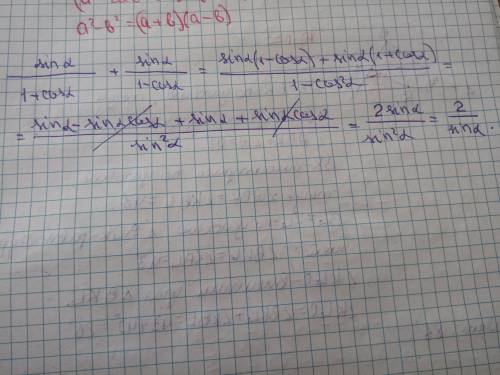 a² - b² = (a + b)(a - b)
sinα / (1 + cosα) + sinα / (1 - cosα) = (sinα(1 - cosα) + sinα(1 + cosα)) / (1 - cos²α) =
= (sinα - sinαcosα + sinα + sinαcosα) / sin²α = 2sinα / sin²α = 2 / sinα.